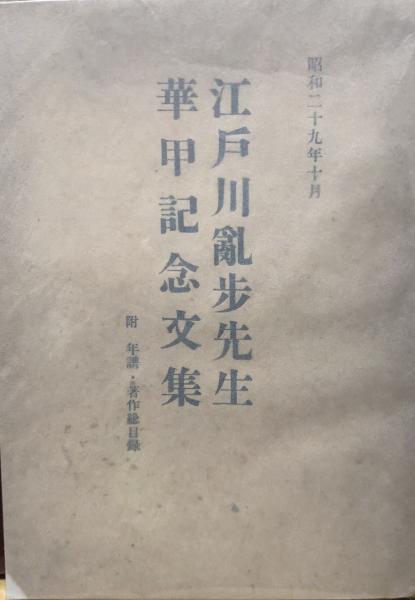 昭和二十九年十月
江戶川亂步先生
華甲記念文集
附 年譜・著作総目録